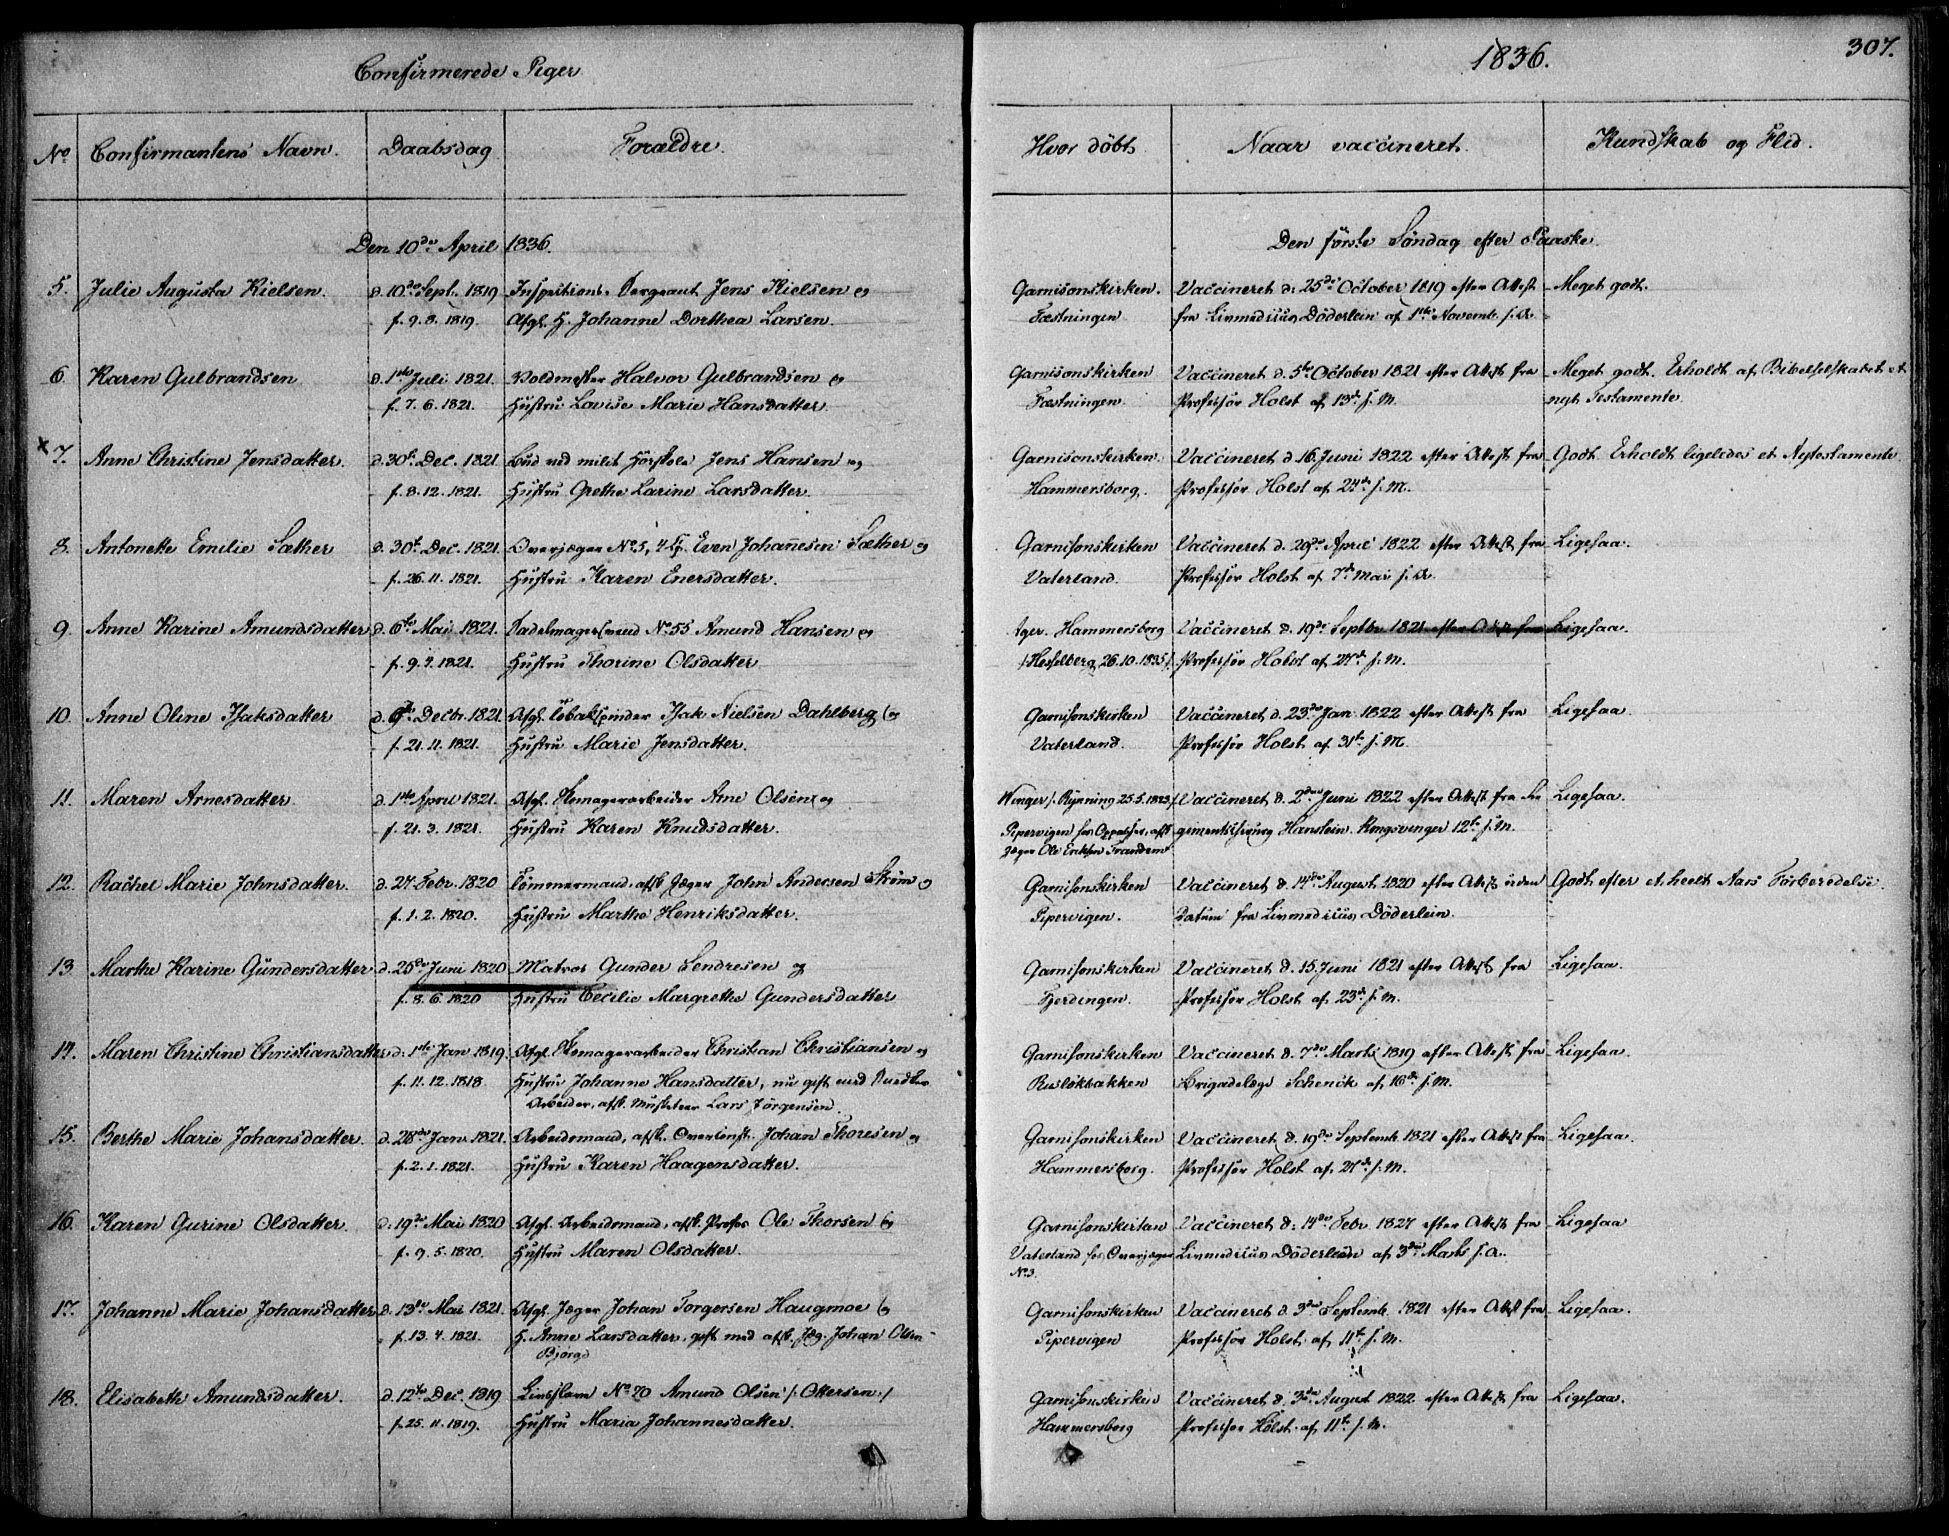 Confirmerede Piger
1836.
307.
No Confirmantens Navn. Daabsdag Forældre. Hvor döbt. Naar vaccineret. Kundskab og Flid.
Den 10de April 1836. Den förste Söndag efter Paaske.
5. Julie Augusta Kielsen. d. 10de Sept. 1819 Inspections-Sergeant Jens Kielsen og Garnisonskirken. Vaccineret d: 25de October 1819 efter Attest Meget godt.
f. 9. 8. 1819. Afgl. H. Johanne Dorthea Larsen. Fæstningen fra Livmedicus Döderlein af 1ste Novemb. s. A.
6. Karen Gulbrandsen d. 1ste Juli 1821. Voldmester Halvor Gulbrandsen og Garnisonskirken Vaccineret d. 5te October 1821 efter Attest fra Meget godt. Erholdt af Bibelselskabet et
f. 7. 6. 1821. Hustru Lovise Marie Hansdatter. Fæstningen Professor Holst af 13de s. M. nyt Testamente
x 7. Anne Christine Jensdatter. d. 30te Dec. 1821 Bud ved milit Höiskole Jens Hansen og Garnisonskirken. Vaccineret d 16 Juni 1822 efter Attest fra Godt. Erholdt ligeledes et Nytestamente
f. 8. 12. 1821. Hustru Grethe Larine Larsdatter Hammersborg. Professor Holst af 24de s. M.
8. Antonette Emilie Sæther d. 30te Dec. 1821. Overjæger No 5, 4 Cp. Even Johannesen Sæther og Garnisonskirken Vaccineret d. 29de April 1822 efter Attest fra Ligesaa.
f. 26. 11. 1821. Hustru Karen Enersdatter. Vaterland. Professor Holst af 7de Mai s. A.
9. Anne Karine Amundsdatter d. 6te Mai 1821. Sadelmagersvend No. 55 Amund Hansen og Ager. Hammersborg Vaccineret d. 19de Septbr 1821 efter Attest fra Ligesaa.
f. 9. 4. 1821. Hustru Thorine Olsdatter /: Hesselberg 26. 10. 1835 :/ Professor Holst af 27de s. M.
10. Anne Oline Isaksdatter d. 9de Decbr. 1821. Afgl. Tobakspinder Isak Nielsen Dahlberg og Garnisonskirken Vaccineret d. 23de Jan 1822 efter Attest fra Ligesaa.
f. 21. 11. 1821. Hustru Marie Jensdatter. Vaterland. Professor Holst af 31te s. M.
11. Maren Arnesdatter d. 1ste April 1821. Afgl. Skomagerarbeider Arne Olsen og Winger /: Rynning 25. 5. 1823 :/ Vaccineret d. 2den Juni 1822 efter Attest fra Re Ligesaa.
f. 21. 3. 1821. Hustru Karen Knudsdatter. Pipervigen hos afsk gimentschirurg Hanstein. Kongsvinger 12te s. M.
Jæger Ole Eriksen
12. Rachel Marie Johnsdatter. d. 27 Febr. 1820 Tömmermand, afsk. Jæger John Andersen Ström og Garnisonskirken Vaccineret d. 14de August 1820 efter Attest uden Godt efter et heelt Aars Forberedelse.
f. 1. 2. 1820. Hustru Marthe Henriksdatter. Pipervigen. Datum fra Livmedicus Döderlein.
13 Marthe Karine Gundersdatter d. 25de Juni 1820 Matros Gunder Sendresen og Garnisonskirken Vaccineret d. 15 Juni 1821 efter Attest fra Ligesaa.
f. 8. 6. 1820 Hustru Cecilie Margrethe Gundersdatter Fjerdingen. Professor Holst af 23de s. M.
14. Maren Christine Christiansdatter d. 1ste Jan 1819. Afgl. Skomagerarbeider Christian Christiansen og Garnisonskirken Vaccineret d. 7de Marts 1819 efter Attest fra Ligesaa.
f. 11. 12. 1818. Hustru Johanne Hansdatter, nu gift med Rusløkbakken Brigadelæge Schenck af 16de s. M.
Arbeider, afsk. Musketeer Lars Jörgensen.
15. Berthe Marie Johansdatter d. 28de Janr 1821. Arbeidsmand, afsk. Johan Thoresen og Garnisonskirken Vaccineret d. 19de Septemb 1821 efter Attest fra Ligesaa.
f. 2. 1. 1821. Hustru Karen Haagensdatter. Hammersborg. Professor Holst af 27de s. M.
16. Karen Gurine Olsdatter. d. 19de Mai 1820 Afgl. Arbeidsmand, afsk. Profos Ole Thorsen og Garnisonskirken Vaccineret d: 14de Febr. 1827 efter Attest fra Ligesaa
f. 9. 5. 1820. Hustru Maren Olsdatter. Vaterland hos Overjæger Livmedicus Döderlein af 3die Marts s. A.
No 3.
17. Johanne Marie Johansdatter d. 13de Mai 1821. Afgl. Jæger Johan Torgersen Haugmoe og Garnisonskirken Vaccineret d. 3die Septemb. 1821 efter Attest fra Ligesaa.
f. 13. 4. 1821. H. Anne Larsdatter, gift med afsk. Jæg. Johan Olsen Pipervigen Professor Holst af 11te s. M.
Bjørge
18. Elisabeth Amundsdatter. d. 12te Dec. 1819 No 20 Amund Olsen /: Ottersen :/ Garnisonskirken Vaccineret d. 3die August 1822 efter Attest fra Ligesaa.
f. 25. 11. 1819. Hustru Maria Johannesdatter. Hammersborg Professor Holst af 11te s. M.